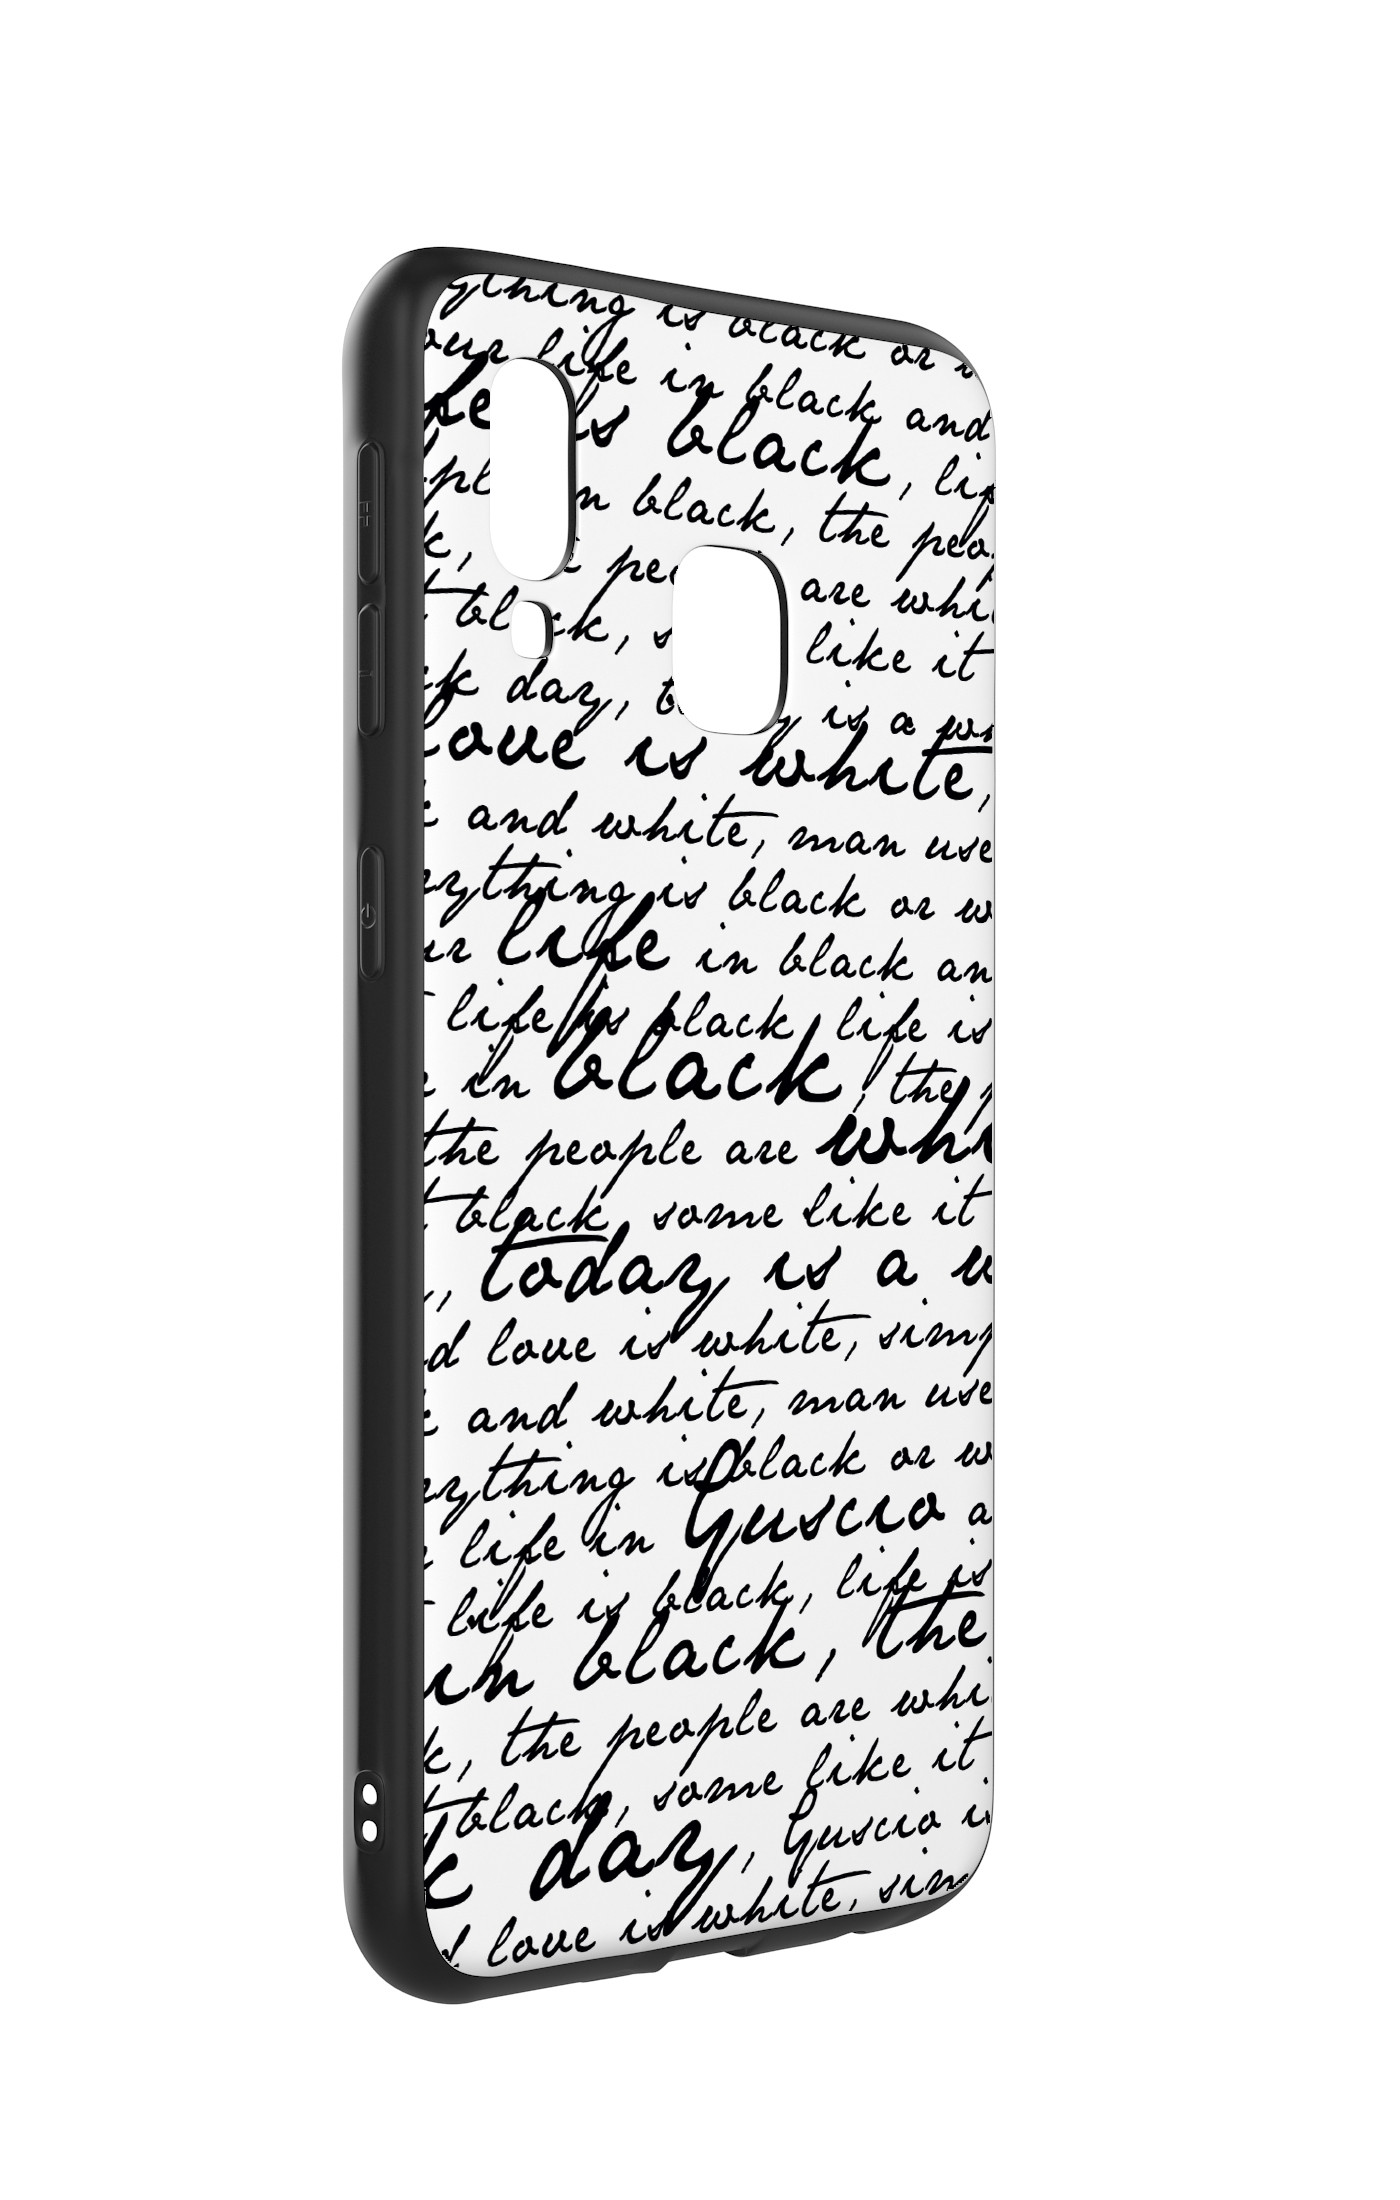 ything is black or
our life in black and
is black,
in black, the
are
black, like it
day, is a
love is white,
and white, man use
rything is black or w
ur life in black an
life is black, life is
in black, the
the people are whi
t black, some like it
, today is a w
d love is white, simp
and white, man use
rything is black or w
life in Guscio a
life is black, life is
in black, the
k, the people are whi
t black, some like it
k day, Guscio i
love is white, sim